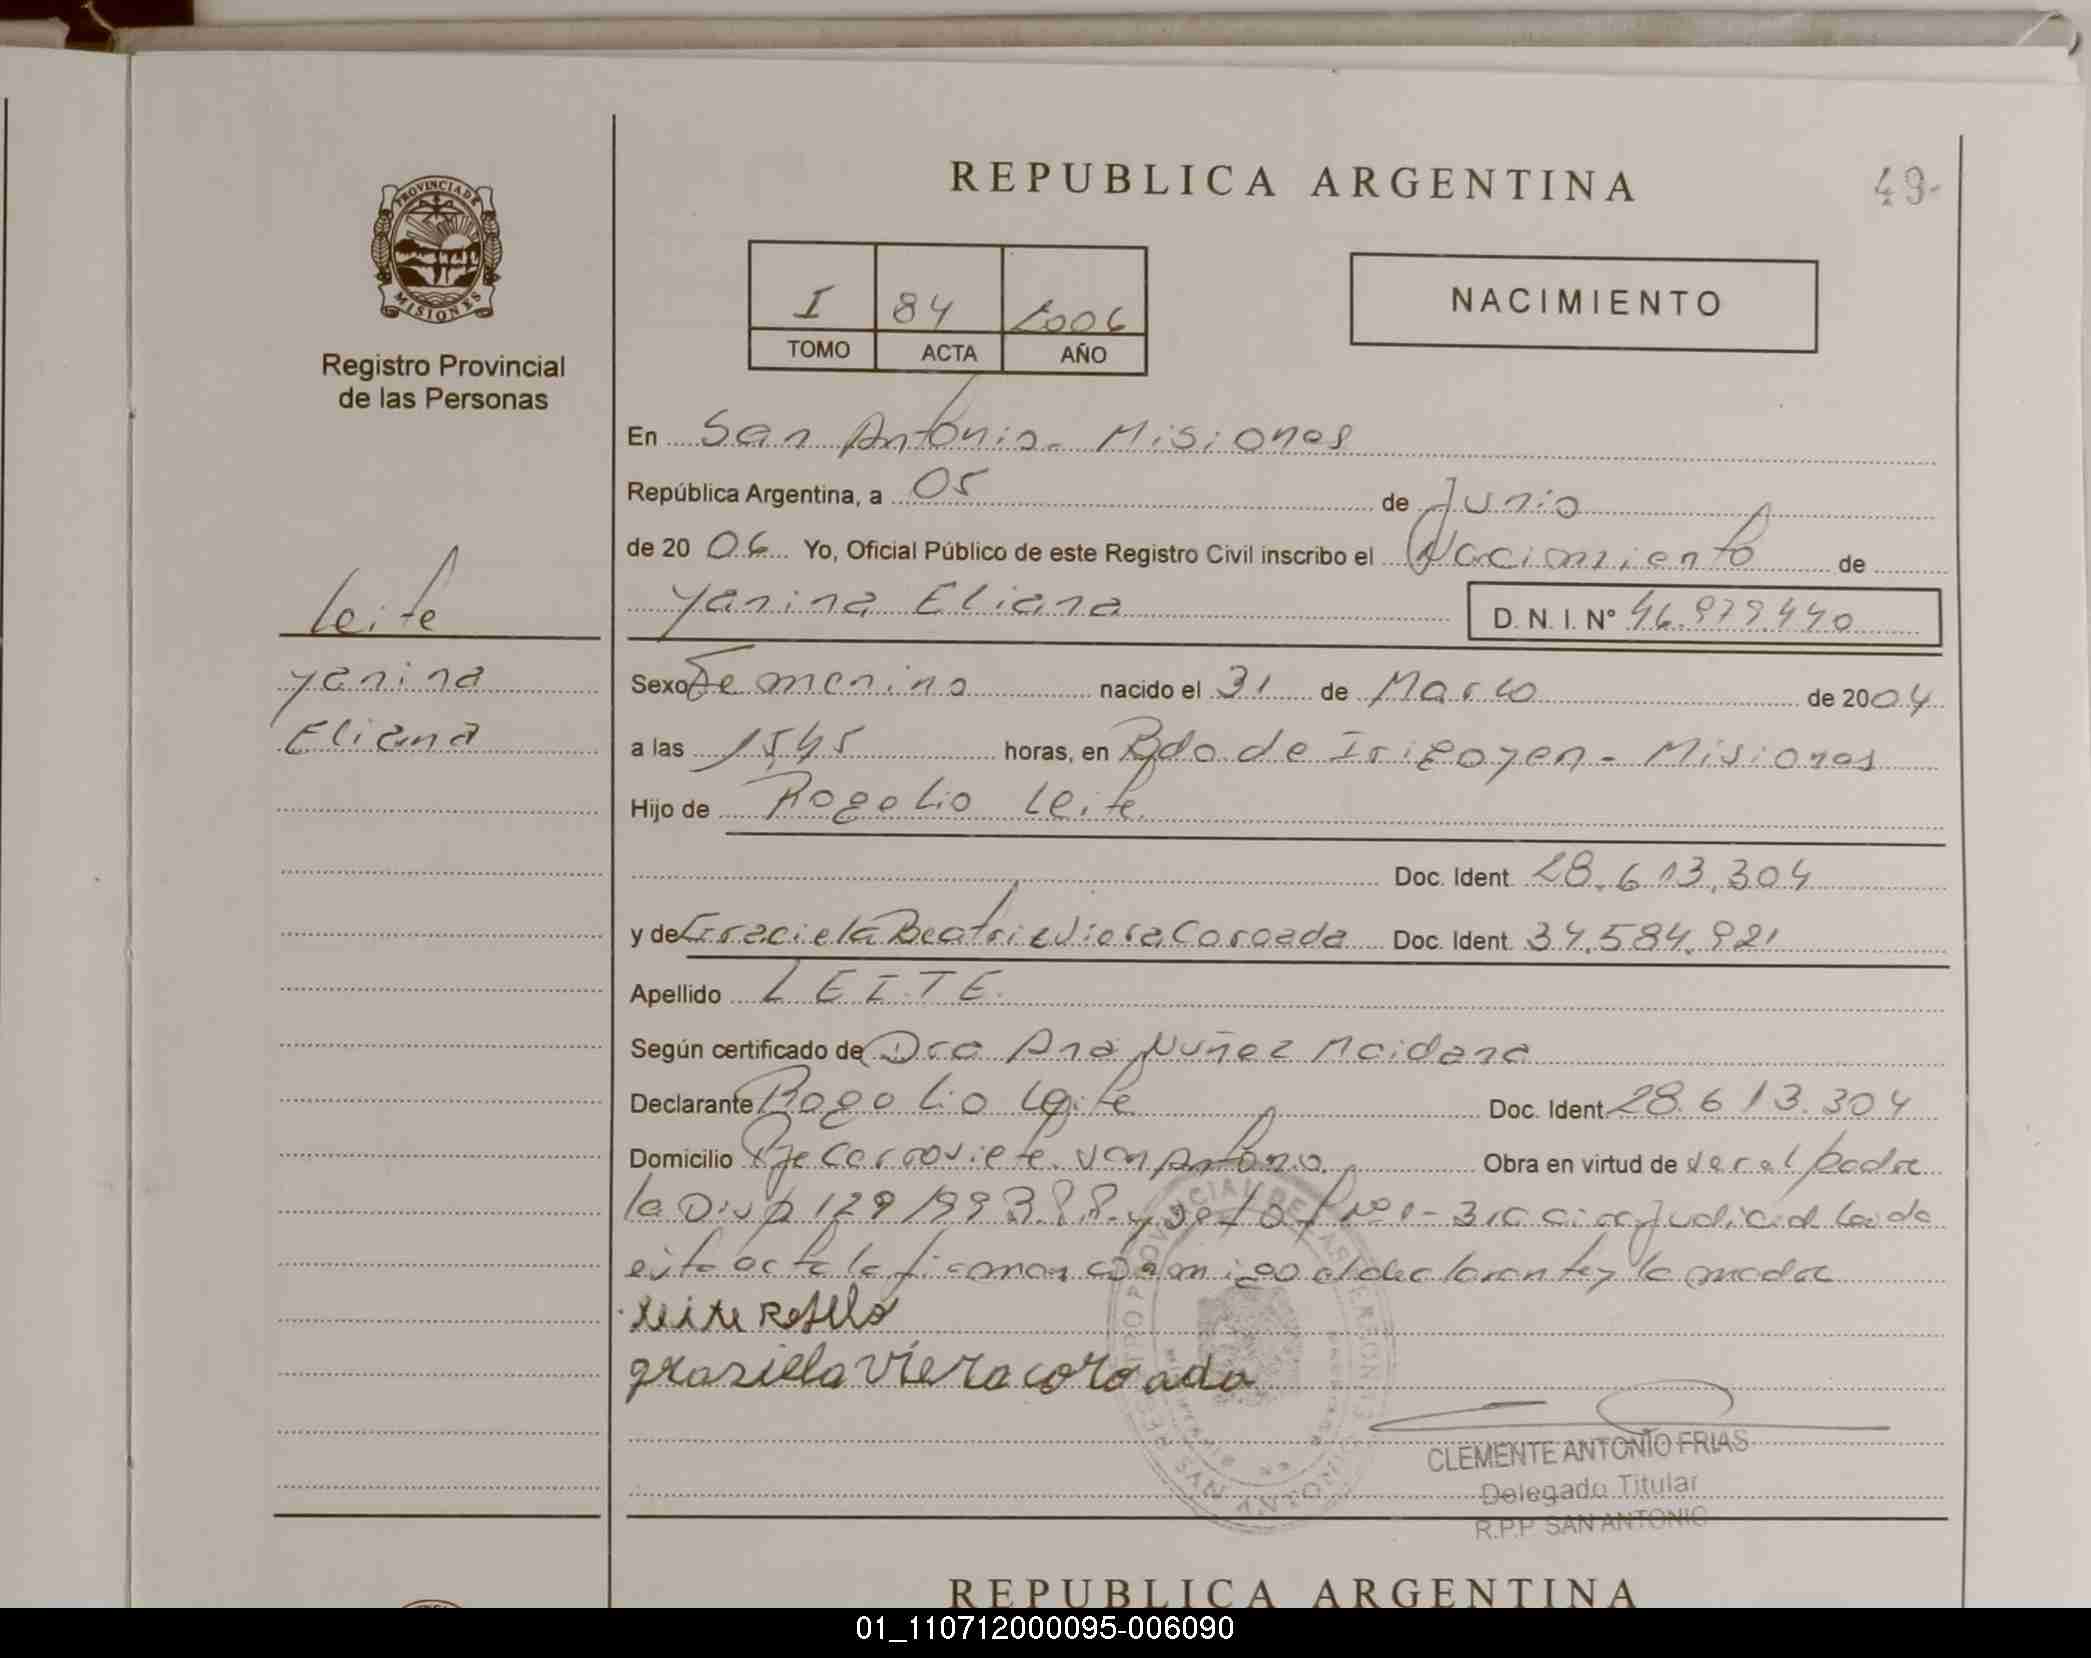 REPUBLICA ARGENTINA
49-
PROVINCIA DE
MISIONES
Registro Provincial
de las Personas
I 84 2006
TOMO ACTA AÑO
NACIMIENTO
En San Antonio - Misiones
República Argentina, a 05 de Junio
de 2006 Yo, Oficial Público de este Registro Civil inscribo el Nacimiento de
Yanina Eliana D. N. I. Nº 46.979.440
Leite
Yanina
Eliana
Sexo Femenino nacido el 31 de Marzo de 2004
a las 15,45 horas, en Bdo. de Irigoyen - Misiones
Hijo de Rogelio Leite
Doc. Ident. 28.613.304
y de Graciela Beatriz Viera Coroada Doc. Ident. 34.584.921
Apellido LEITE
Según certificado de Dra Ana Nuñez Maidana
Declarante Rogelio Leite Doc. Ident. 28.613.304
Domicilio San Antonio Obra en virtud de ser el padre
la Disp 129/99 Judicial Leida
esta acta la firman conmigo el declarante y la madre
Leite
grasiela Viera coroada
CLEMENTE ANTONIO FRIAS
Delegado Titular
R.P.P SAN ANTONIO
REPUBLICA ARGENTINA
01_110712000095-006090